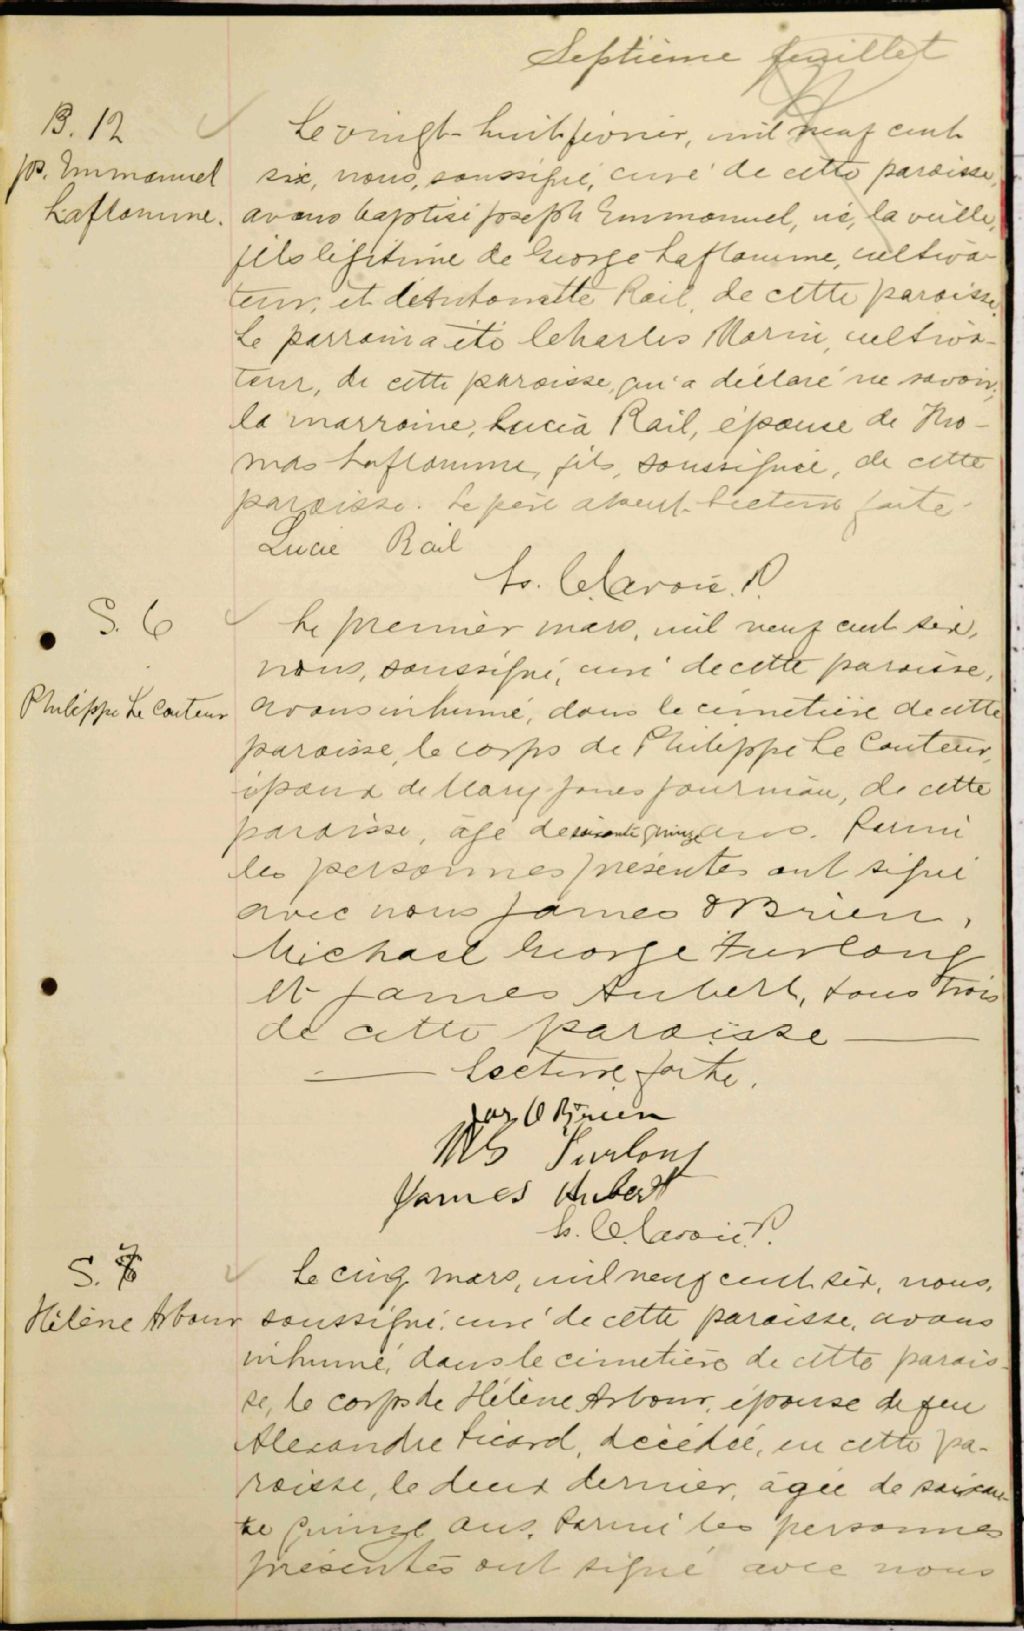 Septième feuillet
B. 12
Jos. Emmanuel
Laflamme.
Le vingt-huit février, mil neuf cent
six, nous, soussigné, curé de cette paroisse,
avons baptisé Joseph Emmanuel, né, la veille,
fils légitime de George Laflamme, cultiva-
teur, et d'Antonette Rail, de cette paroisse.
Le parrain a été Charles Morin, cultiva-
teur, de cette paroisse, qui a déclaré ne savoir;
la marraine, Lucia Rail, épouse de Tho-
mas Laflamme, fils, soussignée, de cette
paroisse. Le père absent. Lecture faite.
Lucie Rail
Ls. C. Lavoie. P.
S. 6
Philippe Le Couteur
Le premier mars, mil neuf cent six,
nous, soussigné, curé de cette paroisse,
avons inhumé, dans le cimetière de cette
paroisse, le corps de Philippe Le Couteur,
époux de Mary Jones, de cette
paroisse, âgé de soixante quinze ans. Parmi
les personnes présentes ont signé
avec nous James O'Brien,
Michael George Furlong
et James Aubert, tous trois
de cette paroisse —
— Lecture faite.
Jas O Brien
M G Furlong
James Aubert
Ls. C. Lavoie. P.
S. 7
Hélène Arbour
Le cinq mars, mil neuf cent six, nous,
soussigné, curé de cette paroisse, avons
inhumé, dans le cimetière de cette parois-
se, le corps de Hélène Arbour, épouse de feu
Alexandre Picard, décédée, en cette pa-
roisse, le deux dernier, âgée de soixan-
te quinze ans. Parmi les personnes
présentes ont signé avec nous